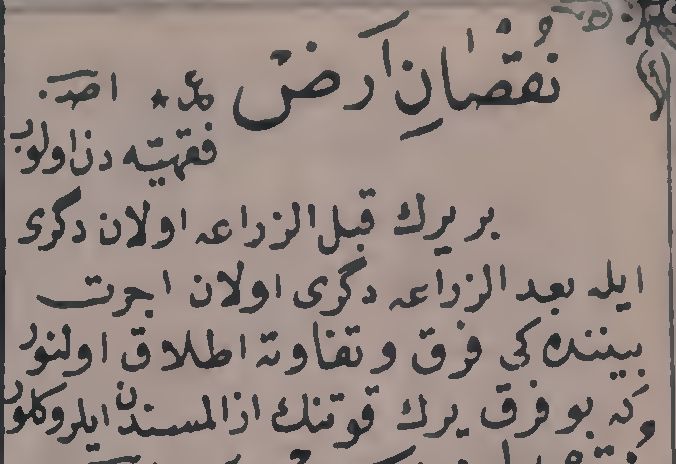 نُقْصَانِ اَرَضْ مل * اصـ.
فقهيّه دن اولوب
بر يرك قبل الزراعه اولان دكرى
ايله بعد الزراعه دكرى اولان اجرت
بيننده كى فرق و تفاوته اطلاق اولنور
كه بو فرق يرك قوتنك ازالمسندن ايلرو كلور